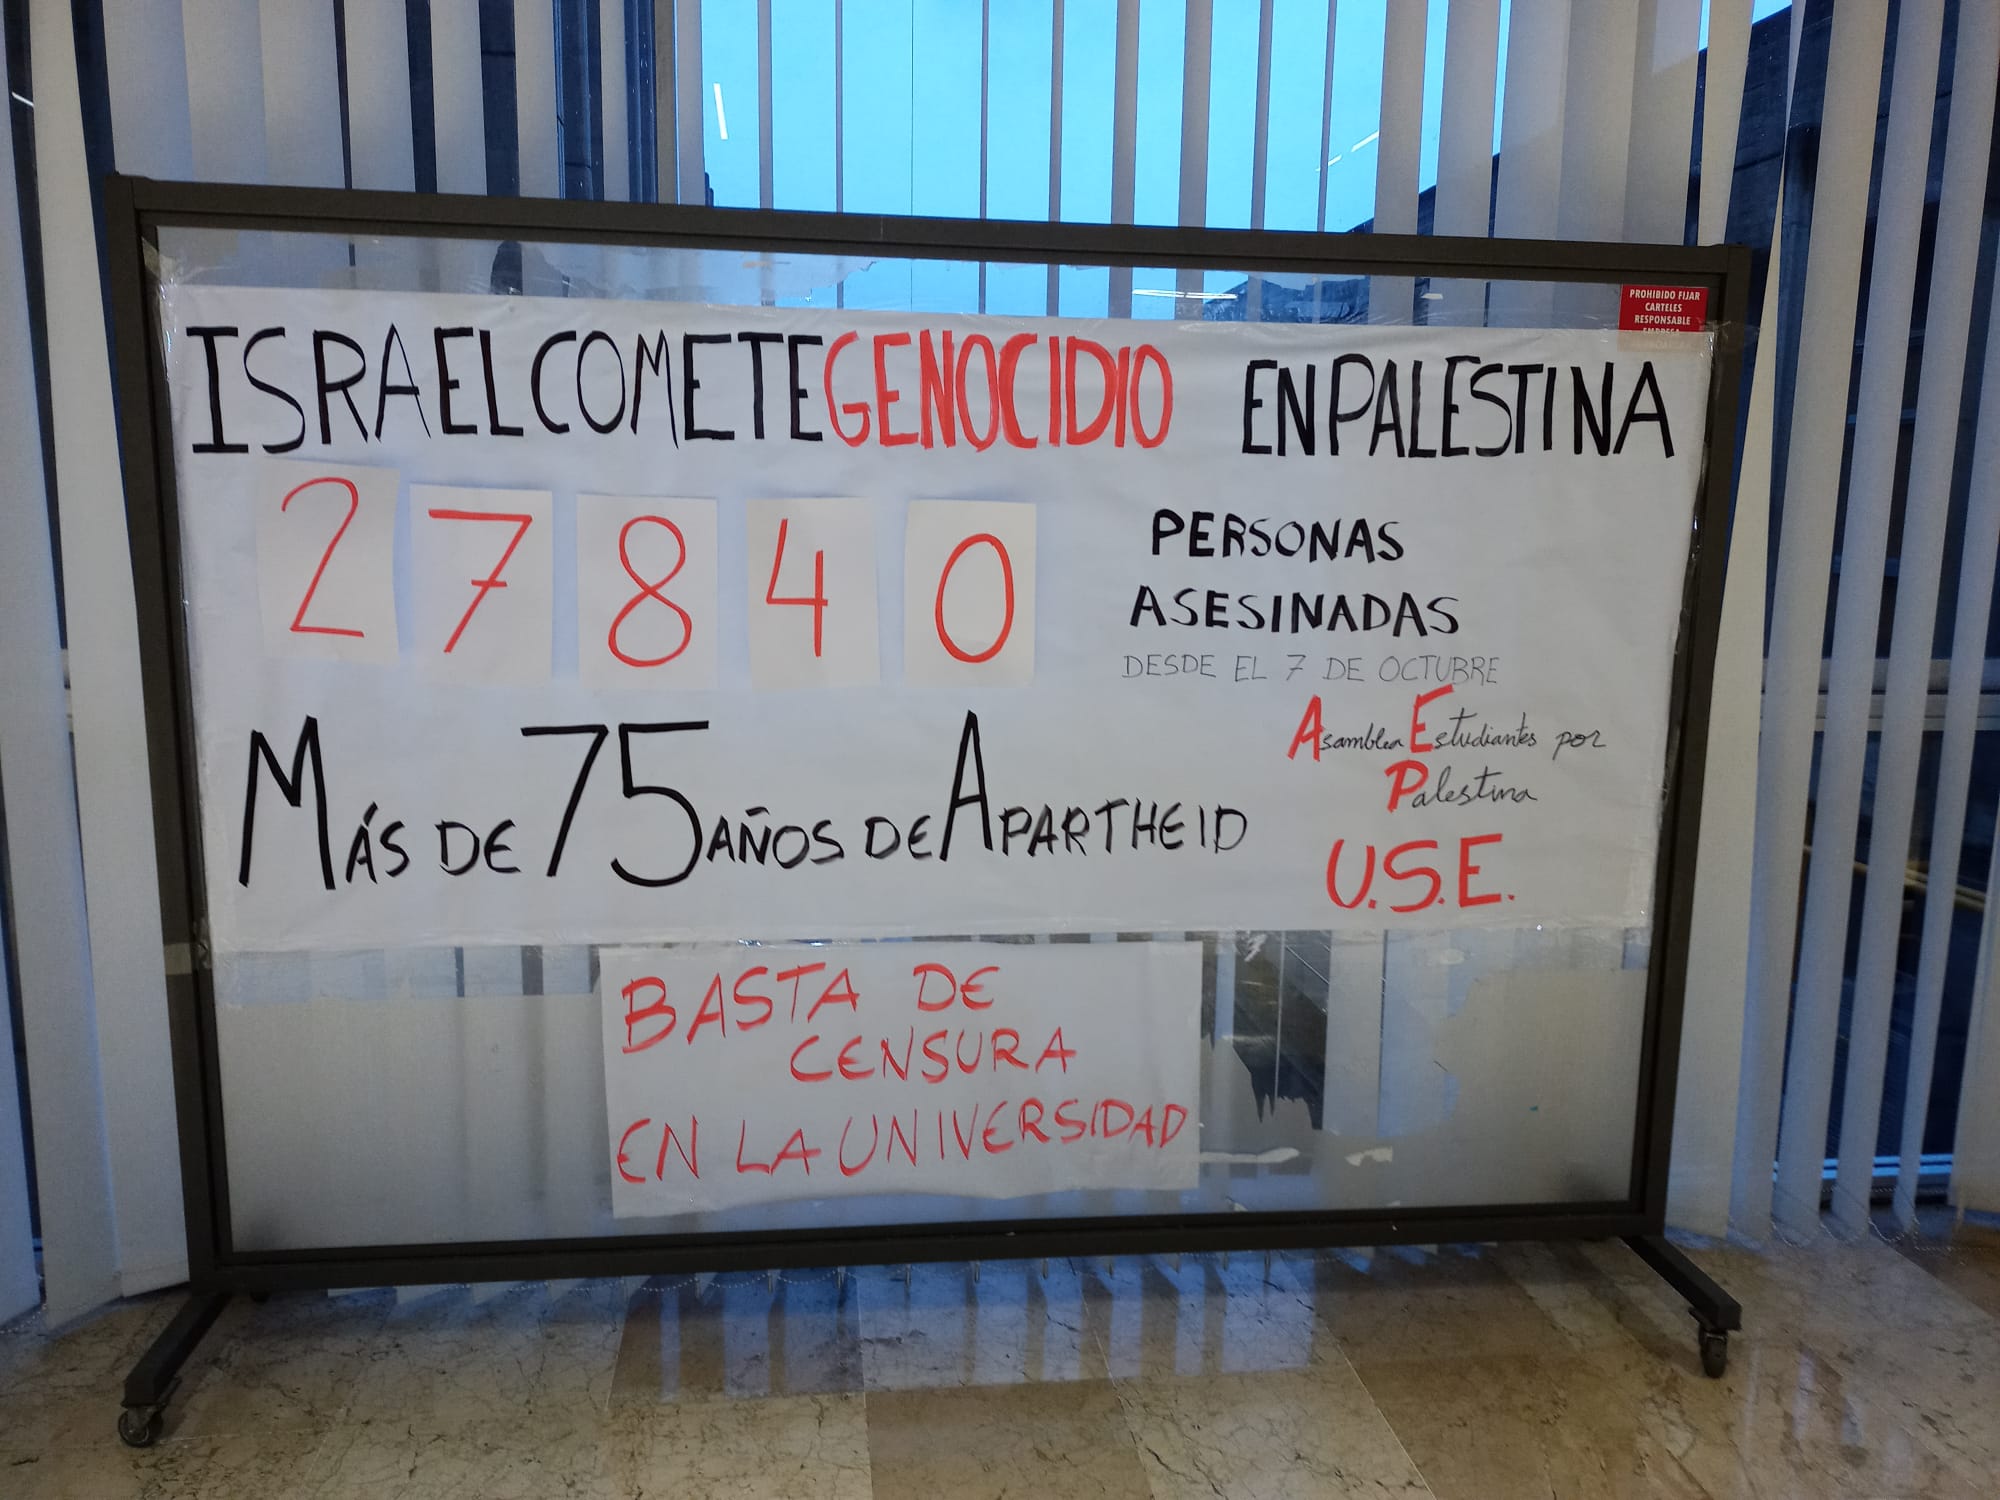 PROHIBIDO FIJAR
CARTELES
RESPONSABLE
EMPRESA
ISRAEL COMETE GENOCIDIO EN PALESTINA
27840
PERSONAS
ASESINADAS
DESDE EL 7 DE OCTUBRE
MÁS DE 75 AÑOS DE APARTHEID
Asamblea Estudiantes por
Palestina
U.S.E.
BASTA DE
CENSURA
EN LA UNIVERSIDAD